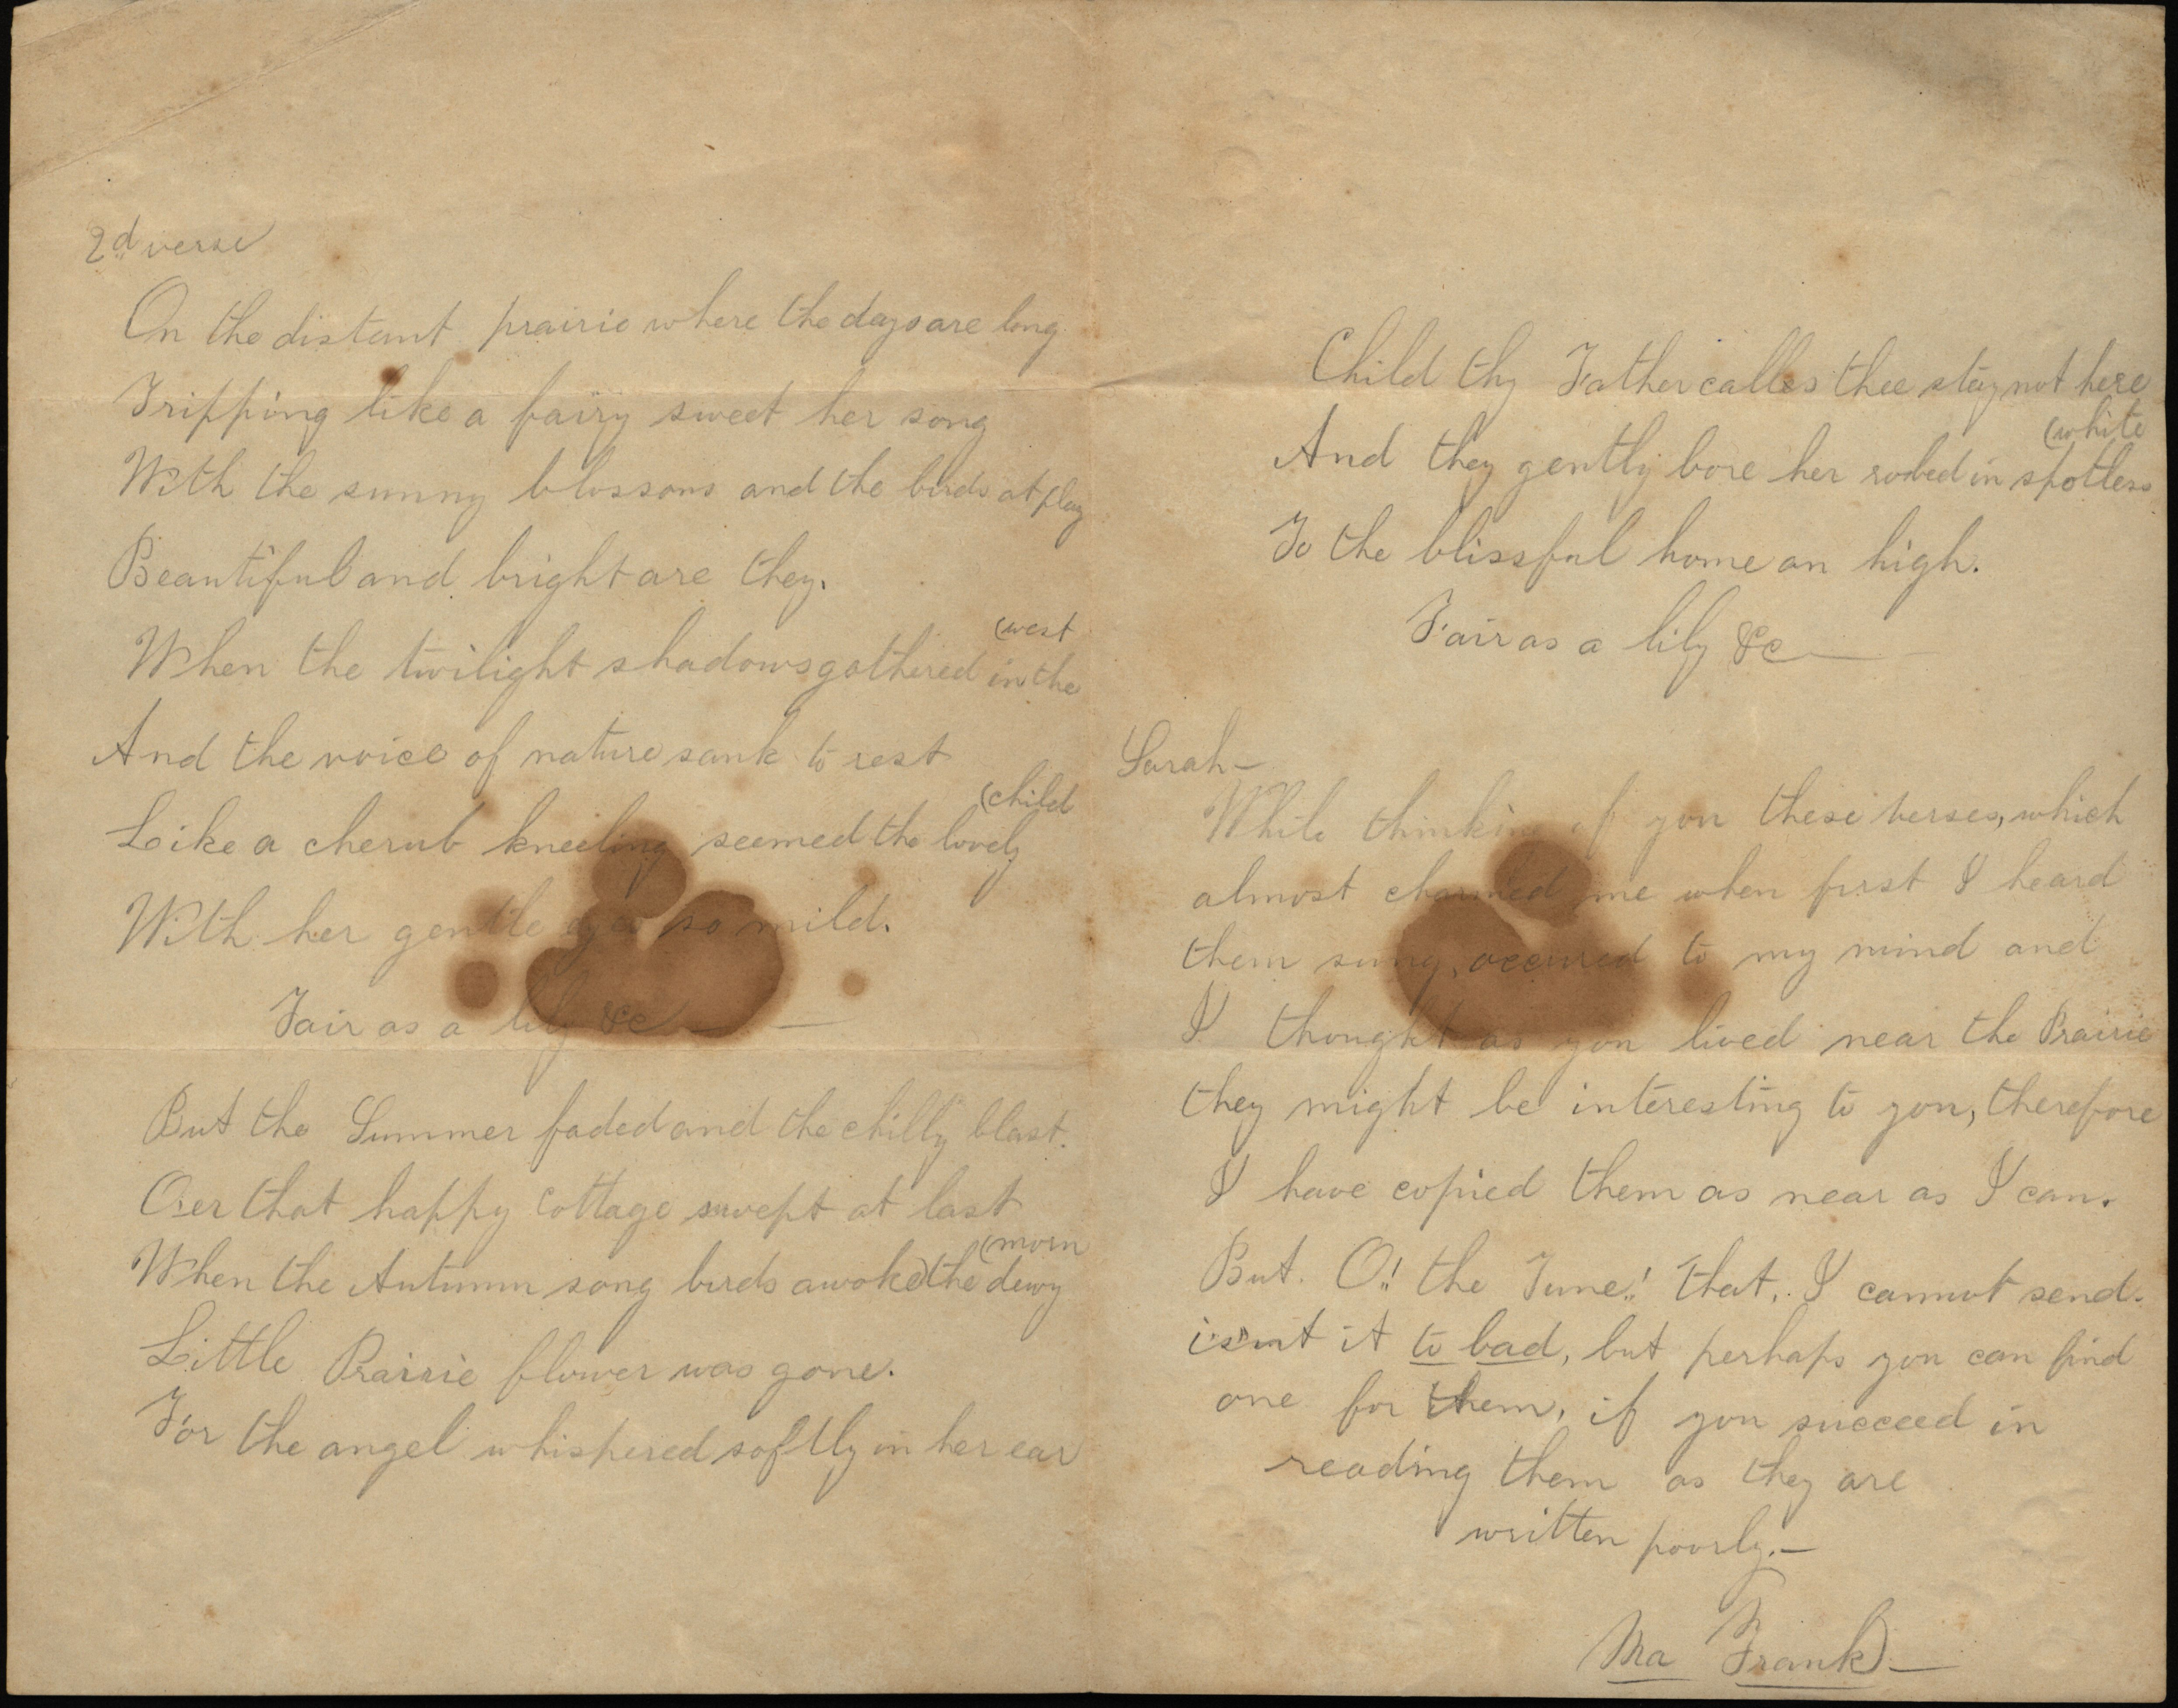 2d verse
On the distant prairie where the days are long
Tripping like a fairy sweet her song
With the sunny blossoms and the birds at play
Beautiful and bright are they.
When the twilight shadows gathered in the (west
And the voice of nature sank to rest
Like a cherub kneeling seemed the lovely (child
With her gentle eyes so mild.
Fair as a lily &c —
But the Summer faded and the chilly blast.
Oer that happy cottage swept at last
When the Autumn song birds awoke the dewy (morn
Little Prairie flower was gone.
For the angel whispered softly in her ear
Child thy Father calles thee stay not here
And they gently bore her robed in spotless (white
To the blissful home on high.
Fair as a lily &c —
Sarah —
While thinking of you these verses, which
almost charmed me when first I heard
them sung, occured to my mind and
I thought as you lived near the Prairie
they might be interesting to you, therefore
I have copied them as near as I can.
But. O!! the Tune!! that, I cannot send.
isnt it to bad, but perhaps you can find
one for them, if you succeed in
reading them as they are
written poorly. —
Ma Frank —